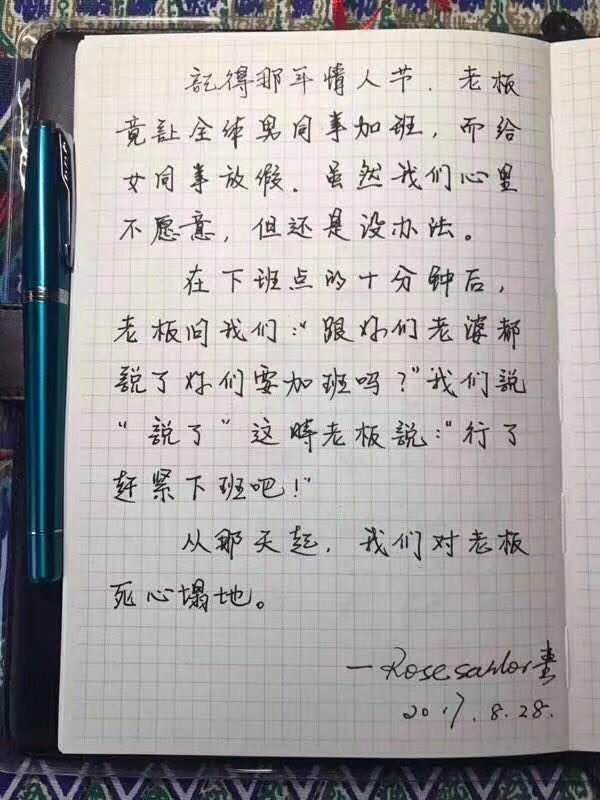 記得那年情人节．老板
竟訟全体男同事加班，而给
女同事放假．虽然我们心里
不愿意，但还是没办法。
在下班点的十分钟后，
老板问我们：“跟妳们老婆都
說了妳们要加班吗？”我们說
“說了”这時老板說：“行了
赶紧下班吧！”
从那天起．我们对老板
死心塌地。
一Rosesahlor書
2017.8.28.